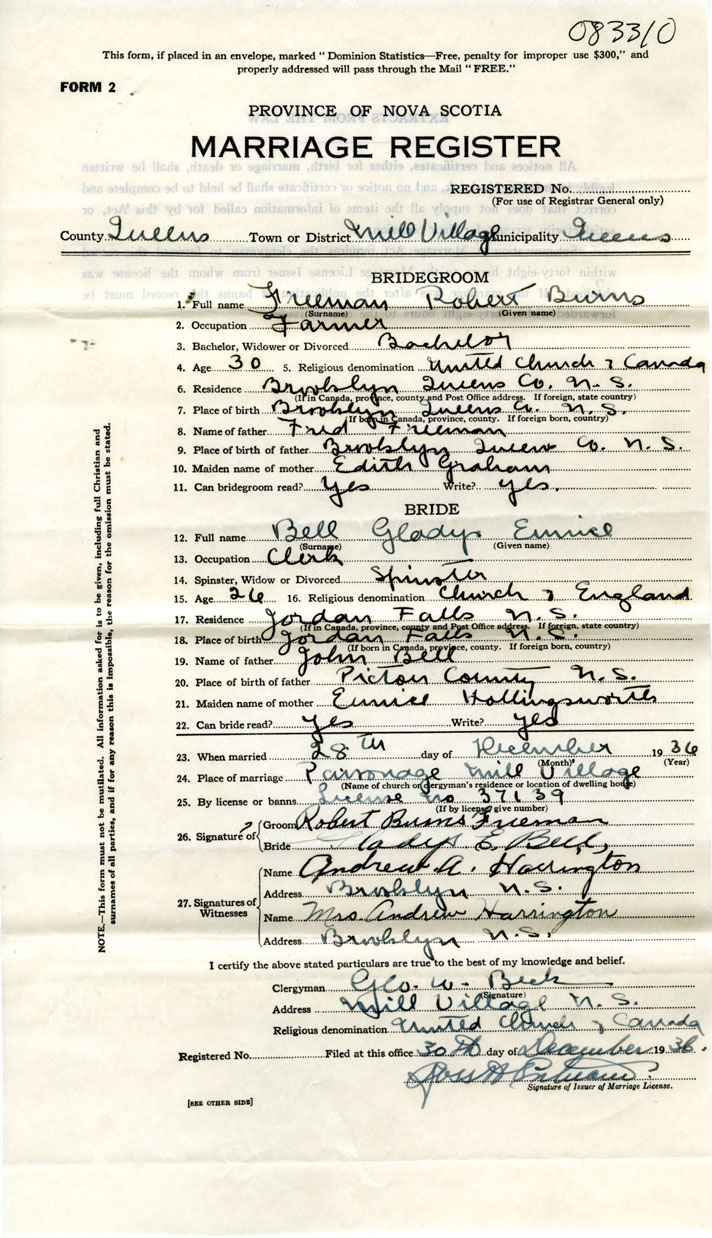 083310
This form, if placed in an envelope, marked "Dominion Statistics—Free, penalty for improper use $300," and
properly addressed will pass through the Mail "FREE."
FORM 2
PROVINCE OF NOVA SCOTIA
MARRIAGE REGISTER
REGISTERED No.
(For use of Registrar General only)
County Queens Town or District Mill Village Municipality Queens
BRIDEGROOM
1. Full name Freeman Robert Burns
(Surname) (Given name)
2. Occupation Farmer
3. Bachelor, Widower or Divorced Bachelor
4. Age 30 5. Religious denomination United Church of Canada
6. Residence Brooklyn Queens Co. N. S.
(If in Canada, province, county and Post Office address. If foreign, state country)
7. Place of birth Brooklyn Queens Co. N. S.
(If born in Canada, province, county. If foreign born, country)
8. Name of father Fred Freeman
9. Place of birth of father Brooklyn Queens Co. N. S.
10. Maiden name of mother Edith Graham
11. Can bridegroom read? Yes Write? Yes.
BRIDE
12. Full name Bell Gladys Eunice
(Surname) (Given name)
13. Occupation Clerk
14. Spinster, Widow or Divorced Spinster
15. Age 26 16. Religious denomination Church of England
17. Residence Jordan Falls N. S.
(If in Canada, province, county and Post Office address. If foreign, state country)
18. Place of birth Jordan Falls N. S.
(If born in Canada, province, county. If foreign born, country)
19. Name of father John Bell
20. Place of birth of father Pictou County N. S.
21. Maiden name of mother Eunice Hollingsworth
22. Can bride read? Yes Write? Yes
23. When married 28th day of December 1936
(Month) (Year)
24. Place of marriage Parsonage Mill Village
(Name of church or clergyman's residence or location of dwelling house)
25. By license or banns License No 37139
(If by license give number)
26. Signature of
Groom Robert Burns Freeman
Bride Gladys E. Bell,
27. Signatures of Witnesses
Name Andrew A. Harrington
Address Brooklyn N. S.
Name Mrs. Andrew Harrington
Address Brooklyn N. S.
I certify the above stated particulars are true to the best of my knowledge and belief.
Clergyman Geo. W. Beck
(Signature)
Address Mill Village N. S.
Religious denomination United Church of Canada
Registered No. Filed at this office 30th day of December 1936.
Signature of Issuer of Marriage License.
[SEE OTHER SIDE]
NOTE.—This form must not be mutilated. All information asked for is to be given, including full Christian and
surnames of all parties, and if for any reason this is impossible, the reason for the omission must be stated.